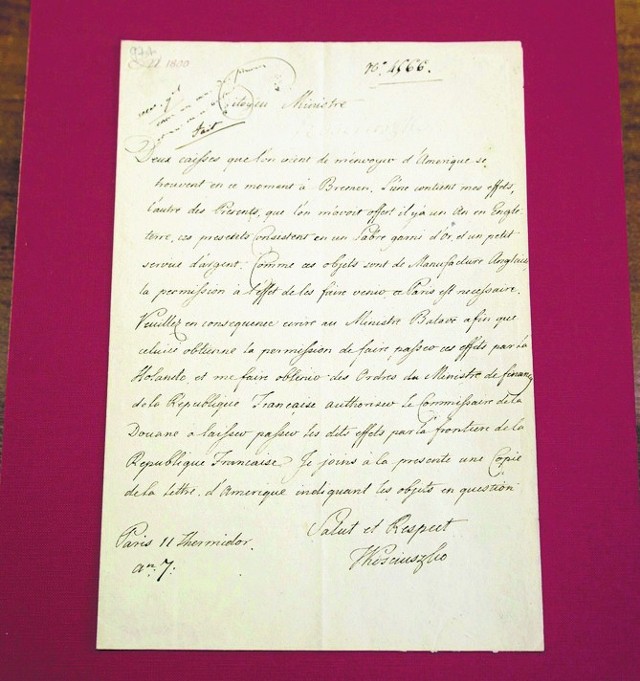 No. 4566.
Citoyen Ministre
fait
Deux caisses que l'on vient de m'envoyer d'Amerique se
trouvent en ce moment à Bremen. L'une contient mes effets,
l'autre des Presents, que l'on m'avoit offert il y a un An en Engle-
terre, ces presents Consistent en un Sabre garni d'Or, et un petit
servus d'argent. Comme ces objets sont de Manufacture Anglaise
la permission à l'effet de les faire venir a Paris est necessaire.
Veuillez en consequence ecrire au Ministre Batave afin que
celuici obtienne la permission de faire passer ces effets par la
Holande, et me faire obtenir des Ordres du Ministre de finance
de la République Francaise authoriser le Commissaire de la
Douane a laisser passer les dits effets par la frontiere de la
Republique Francaise. Je joins à la presente une Copie
de la lettre d'Amerique indiquant les objets en question
Salut et Respect
Paris 11 Thermidor.
an 7:
TKosciuszko